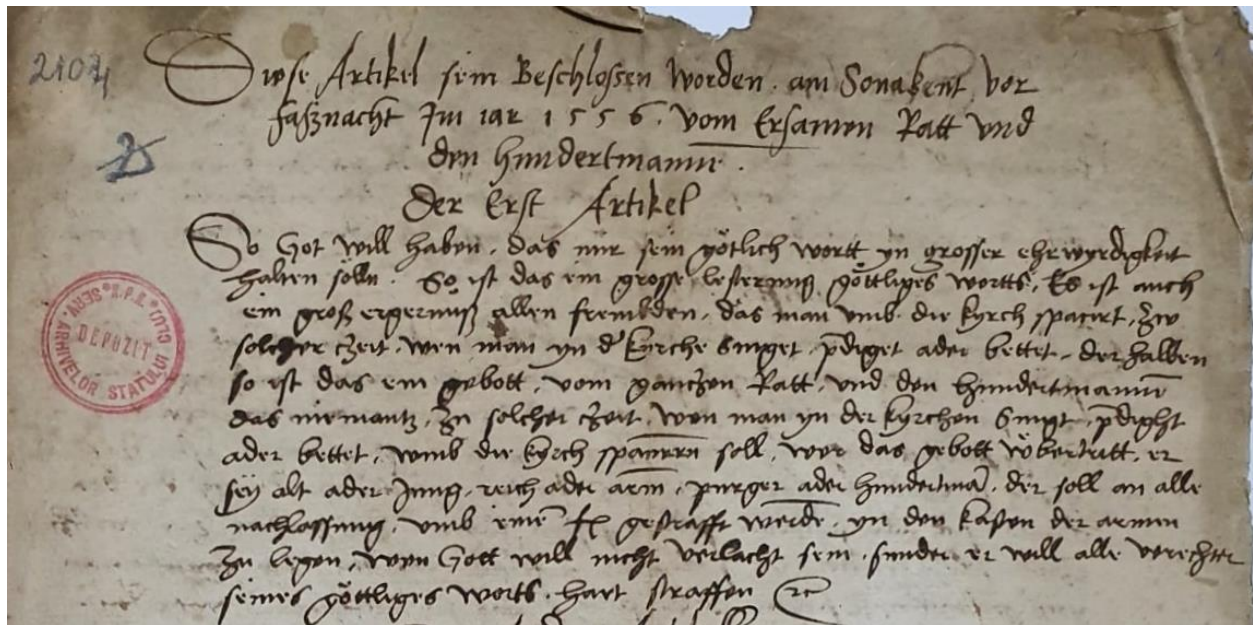 2104
Diese Artikel sein Beschlossen worden. am Sonabent vor
faßnacht Im iar 1556. vom Ersamen Ratt vnd
den hundertmannē.
Der Erst Artikel
So Got will haben, das mir sein götlich wortt yn grosser ehrwyrdigkeit
halten sölln. So ist das ein grosse lesterung göttliges wortts, Es ist auch
ein groß ergernuß allen frembden, das man vmb die kyrch spacirt, zw
solcher czeit, wen man yn d' kyrche singet, p̄diget ader bettet, derhalben
so ist das ein gebott, vom ganczen Ratt, vnd den hundertmannē
das niemantz, zu solcher czeit, wen man yn der kyrchen singt, p̄dight
ader bettet, vmb die kyrch spacirenn soll, wer das gebott vbertritt, er
sey alt ader Jung, reich ader arm, purger ader hundertmā, der soll an alle
nachlassung, vmb einē fl gestrafft werdē, yn den kasten der armen
zu legen, wen Gott will nicht verlacht sein, sunder er will alle verechter
seines göttliges worts, hart straffen ꝛc
CLUJ * SERV. ARHIVELOR STATULUI
DEPOZIT